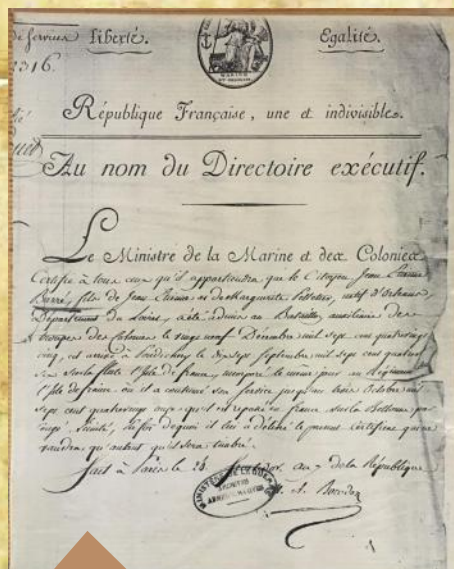 de services Liberté. Egalité.
2316.
MARINE
République Française, une et indivisible.
Au nom du Directoire exécutif.
Le Ministre de la Marine et des Colonies
Certifie à tous ceux qu'il appartiendra que le Citoyen Jean Pierre
Barré, fils de Jean Pierre et de Marguerite natif d'Orléans
Département du Loiret, a été admis au Bataillon auxiliaire des
troupes des Colonies le vingt neuf Décembre mil sept cent quatre vingt
cinq, est arrivé à le dix sept Septembre mil sept cent quatre
sur la flute l'Isle de france, incorporé le même jour au Régiment
l'Isle de france où il a continué son Service jusqu'au trois Octobre mil
sept cent quatre vingt onze qu'il est repassé en france sur la Bellone
congé En foi de quoi il lui a délivré le présent certificat qui ne
vaudra qu'autant qu'il sera timbré.
fait à Paris le 28 an 7 de la République
MINISTERE DE LA GUERRE
ARCHIVES ADMINISTRATIVES